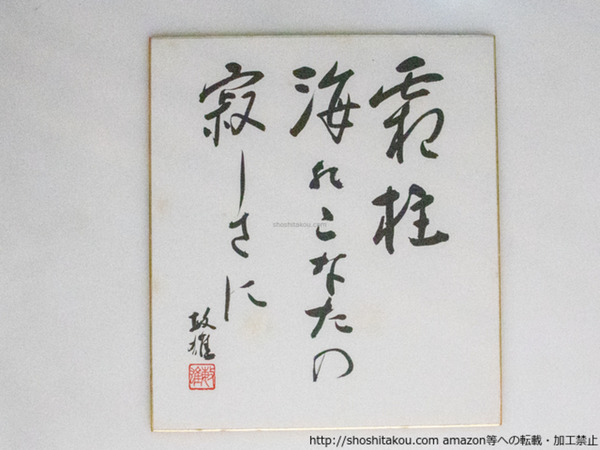 霜柱
海のこなたの
寂しさに
shoshitakou.com
http://shoshitakou.com amazon等への転載・加工禁止